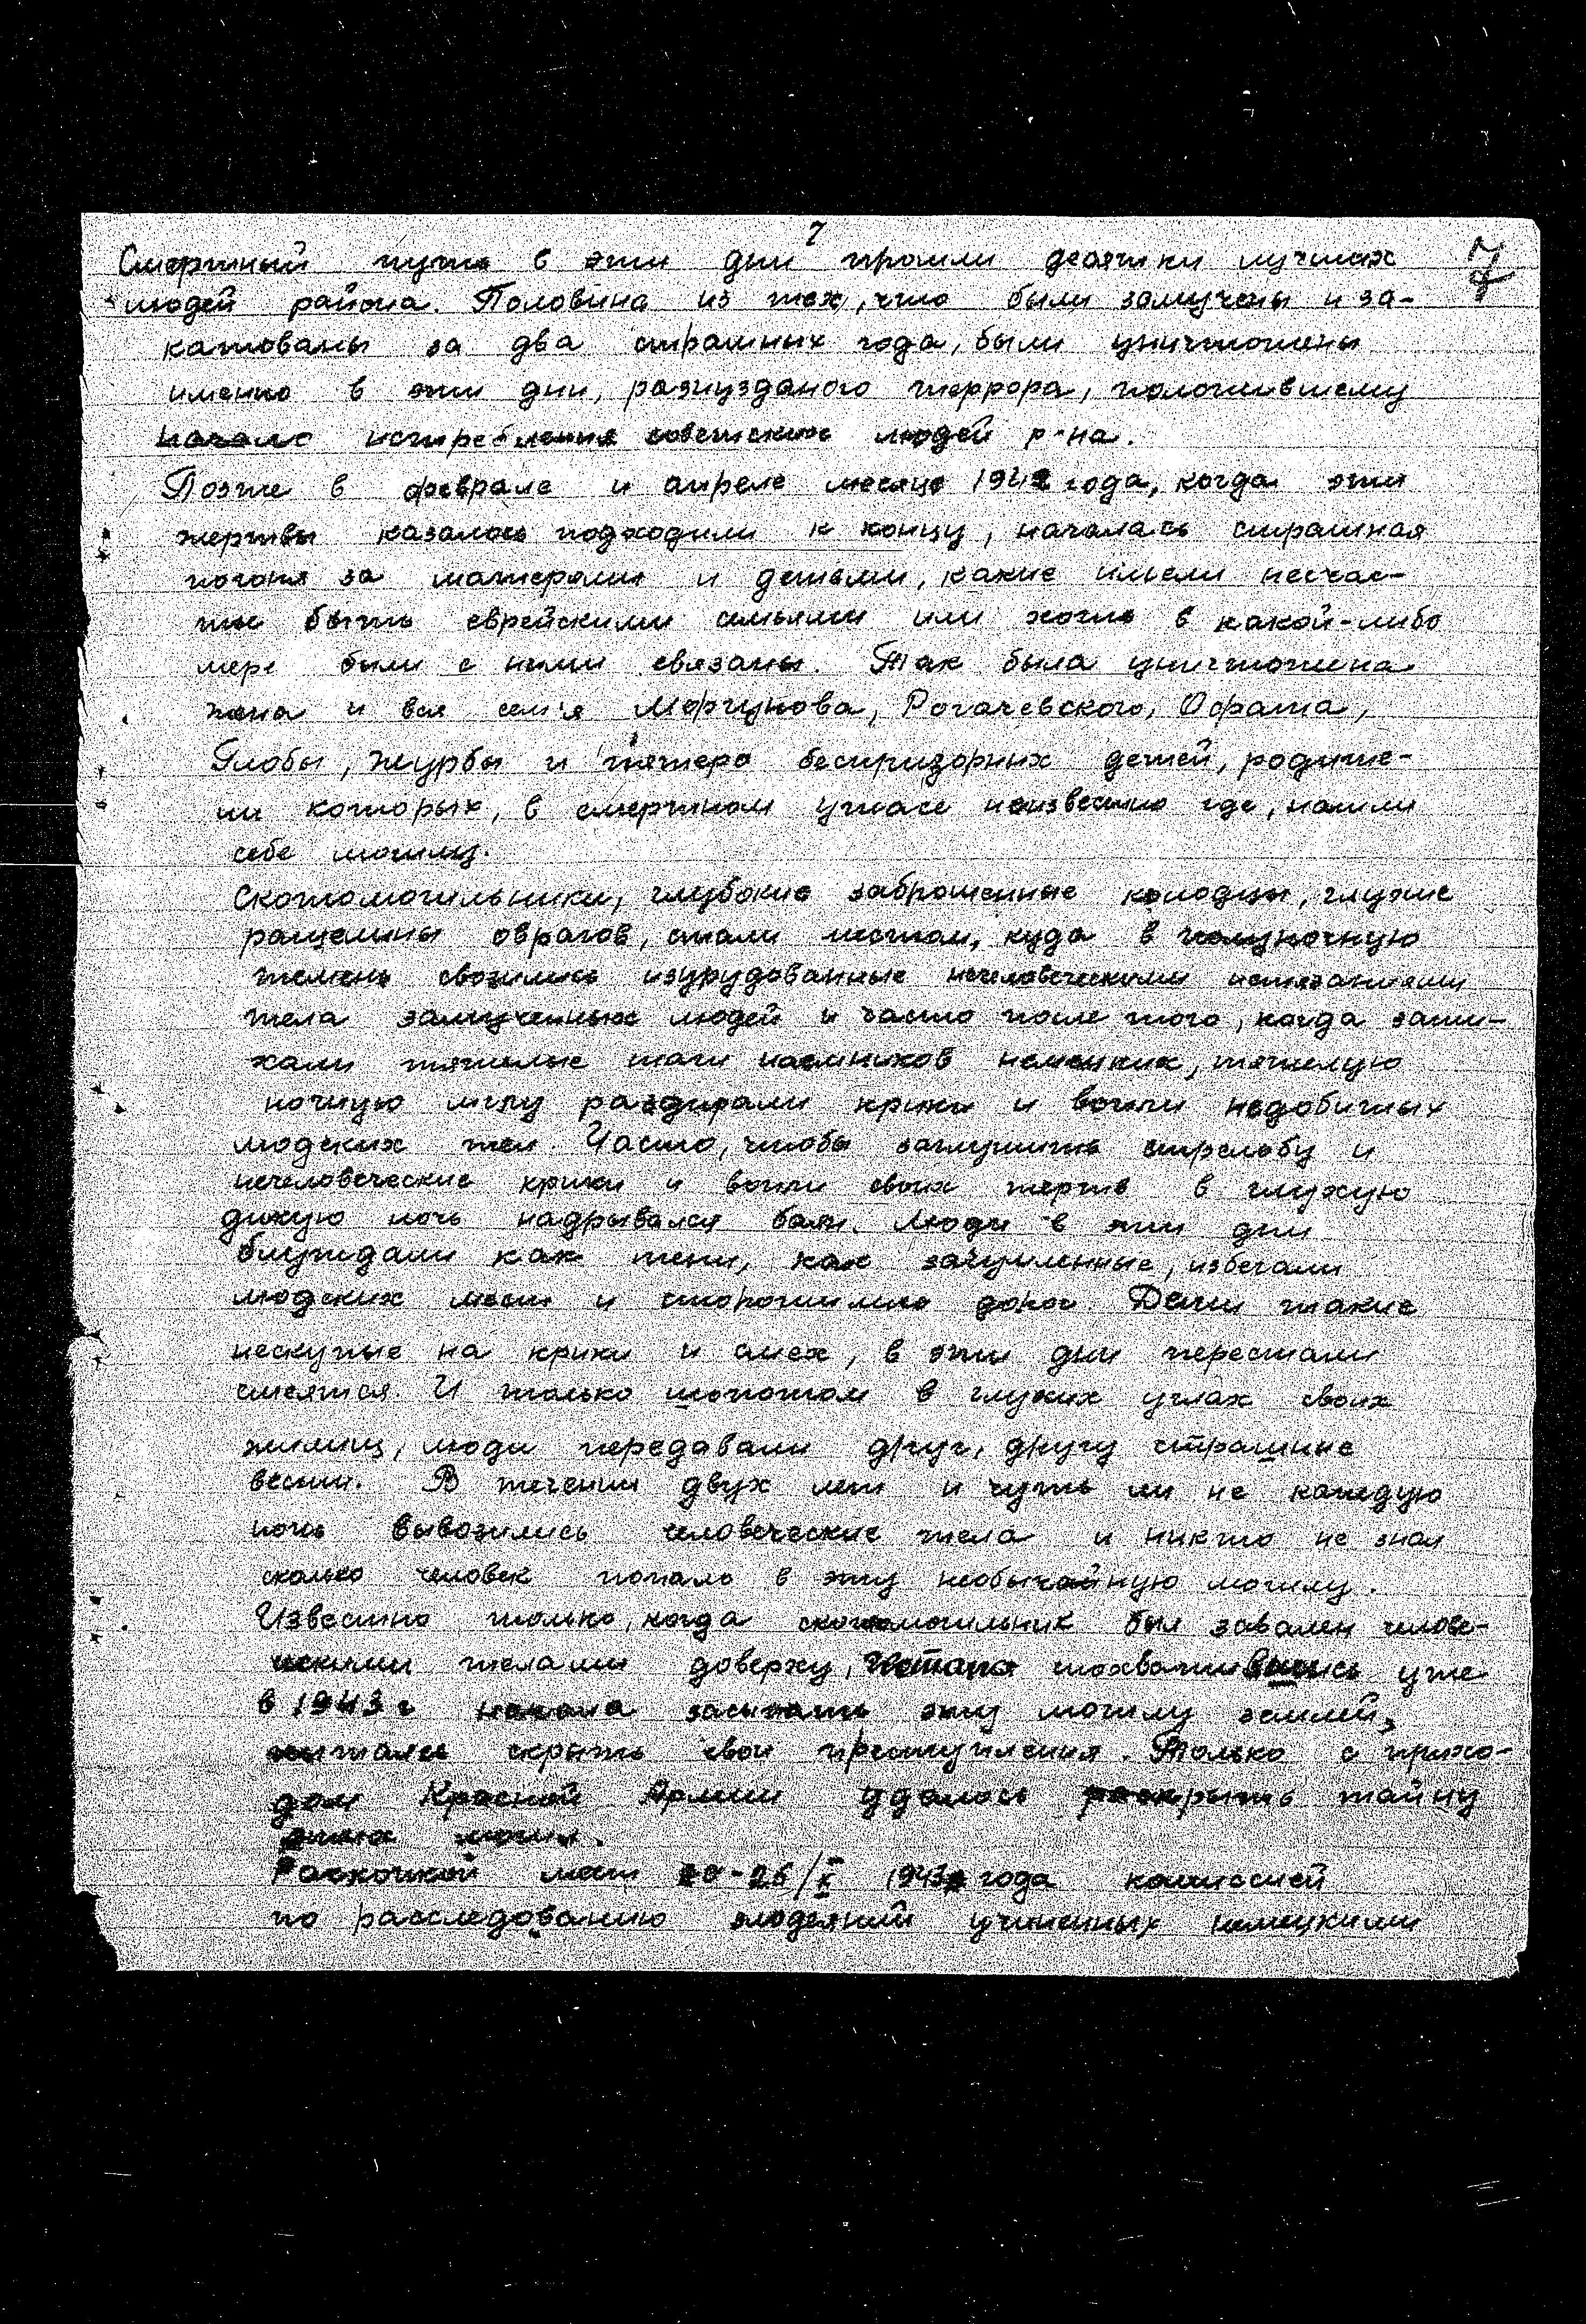 7
7
Смертный путь в эти дни прошли десятки лучших
людей района. Половина из тех, что были замучены и за-
катованы за два страшных года, были уничтожены
именно в эти дни, разнузданого террора, положившему
начало истребления советских людей р-на.
Позже в феврале и апреле месяце 1942 года, когда эти
жертвы казалось подходили к концу, началась страшная
погоня за матерями и детьми, какие имели несчас-
тье быть еврейскими семьями или хоть в какой-либо
мере были с ними связаны. Так была уничтожена
жена и вся сем'я Моргунова, Рогачевского, Офата,
Глобы, Журбы и пятеро беспризорных детей, родите-
ли которых, в смертном ужасе неизвестно где, нашли
себе могилу.
Скотомогильники, глубокие заброшенные колодцы, глухие
ращелины оврагов, стали местом, куда в полуночную
темень свозились изурудованные нечеловеческими истязаниями
тела замученных людей и часто после того, когда зати-
хали тяжелые шаги наемников немецких, тяжелую
ночную мглу раздирали крики и вопли недобитых
людских тел. Часто, чтобы заглушить стрельбу и
нечеловеческие крики и вопли своих жертв в глухую
дикую ночь надрывался баян. Люди в эти дни
блуждали как тени, как зачумленные, избегали
людских мест и сторонились дорог. Дети такие
нескупые на крики и смех, в эти дни перестали
смеятся. И только шопотом в глухих углах своих
жилищ, люди передавали друг, другу страшные
вести. В течении двух лет и чуть ли не каждую
ночь вывозились человеческие тела и никто не знал
сколько человек попало в эту необычайную могилу.
Известно только, когда скотомогильник был завален челове-
ческими телами доверху, Гестапо схватившись уже
в 1943 г начала засыпать эту могилу землей,
пытаясь скрыть свои преступления. Только с прихо-
дом Красной Армии удалось раскрыть тайну
этих могил.
Раскопкой мест 20-26/X 1943 года комиссией
по расследованию злодеяний учиненных немецкими